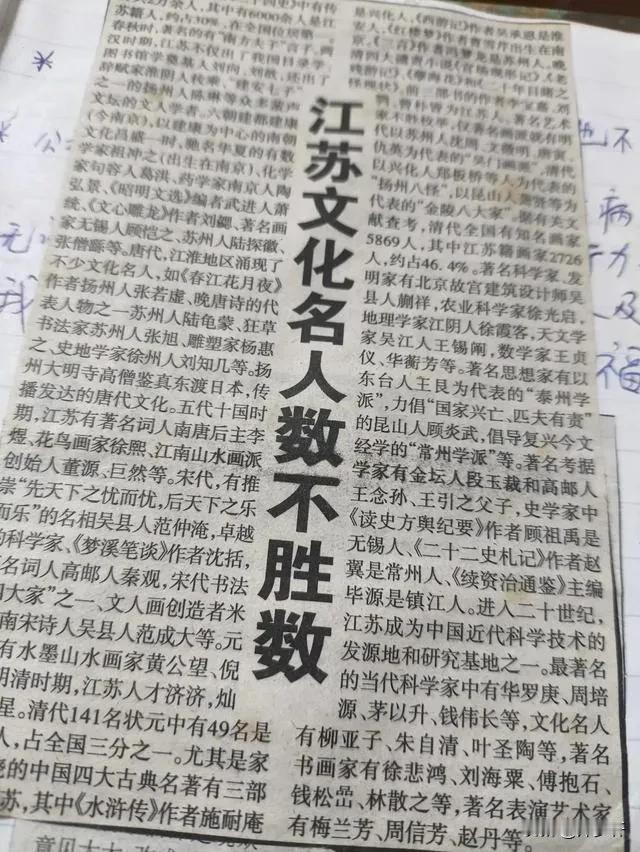 江苏文化名人数不胜数
万余人，其中有6000余人是江
苏籍人，约占30%，在全国位居第一
春秋时，著名的有“南方夫子”言子。两
汉时期，江苏不仅出了我国目录学、
图书馆学奠基人刘向、刘歆，还出了
辞赋家淮阴人枚乘、“建安七子”
之一的扬州人陈琳等众多蜚声
文坛的文人学者。六朝建都建康
(今南京)，以建康为中心的南朝
文化昌盛一时，驰名华夏的有数
学家祖冲之(出生在南京)、化学
家句容人葛洪、药学家南京人陶
弘景、《昭明文选》编者武进人萧
统、《文心雕龙》作者刘勰、著名画
家无锡人顾恺之、苏州人陆探微、
张僧繇等。唐代，江淮地区涌现了
不少文化名人，如《春江花月夜》
作者扬州人张若虚、晚唐诗的代
表人物之一苏州人陆龟蒙、狂草
书法家苏州人张旭、雕塑家杨惠
之、史地学家徐州人刘知几等。扬
州大明寺高僧鉴真东渡日本，传
播发达的唐代文化。五代十国时
期，江苏有著名词人南唐后主李
煜、花鸟画家徐熙、江南山水画派
创始人董源、巨然等。宋代，有推
崇“先天下之忧而忧，后天下之乐
而乐”的名相吴县人范仲淹，卓越
的科学家、《梦溪笔谈》作者沈括，
名词人高邮人秦观，宋代书法
四大家”之一、文人画创造者米
南宋诗人吴县人范成大等。元
有水墨山水画家黄公望、倪
明清时期，江苏人才济济，灿
星。清代141名状元中有49名是
人，占全国三分之一。尤其是家
晓的中国四大古典名著有三部
苏，其中《水浒传》作者施耐庵
是兴化人，《西游记》作者吴承恩是淮
安人，《红楼梦》作者曹雪芹出生在南
京。《三言》作者冯梦龙是苏州人。晚
清四大谴责小说《官场现形记》、《老
残游记》、《孽海花》和《二十年目睹之
怪现状》，前三部书的作者李宝嘉、刘
曾朴皆为江苏人。著名艺术
家不胜枚举，仅著名画派就有明
代以苏州人沈周、文徵明、唐寅、
仇英为代表的“吴门画派”，清代
以兴化人郑板桥等人为代表的
“扬州八怪”，以昆山人龚贤等为
代表的“金陵八大家”。据有关文
献查考，清代全国有知名画家
5869人，其中江苏籍画家2726
人，约占46.4%。著名科学家、发
明家有北京故宫建筑设计师吴
县人蒯祥，农业科学家徐光启，
地理学家江阴人徐霞客，天文学
家吴江人王锡阐，数学家王贞
仪、华蘅芳等。著名思想家有以
东台人王艮为代表的“泰州学
派”，力倡“国家兴亡、匹夫有责”
的昆山人顾炎武，倡导复兴今文
经学的“常州学派”等。著名考据
学家有金坛人段玉裁和高邮人
王念孙、王引之父子，史学家中
《读史方舆纪要》作者顾祖禹是
无锡人、《二十二史札记》作者赵
翼是常州人、《续资治通鉴》主编
毕源是镇江人。进入二十世纪，
江苏成为中国近代科学技术的
发源地和研究基地之一。最著名
的当代科学家中有华罗庚、周培
源、茅以升、钱伟长等，文化名人
有柳亚子、朱自清、叶圣陶等，著名
书画家有徐悲鸿、刘海粟、傅抱石、
钱松嵒、林散之等，著名表演艺术家
有梅兰芳、周信芳、赵丹等。